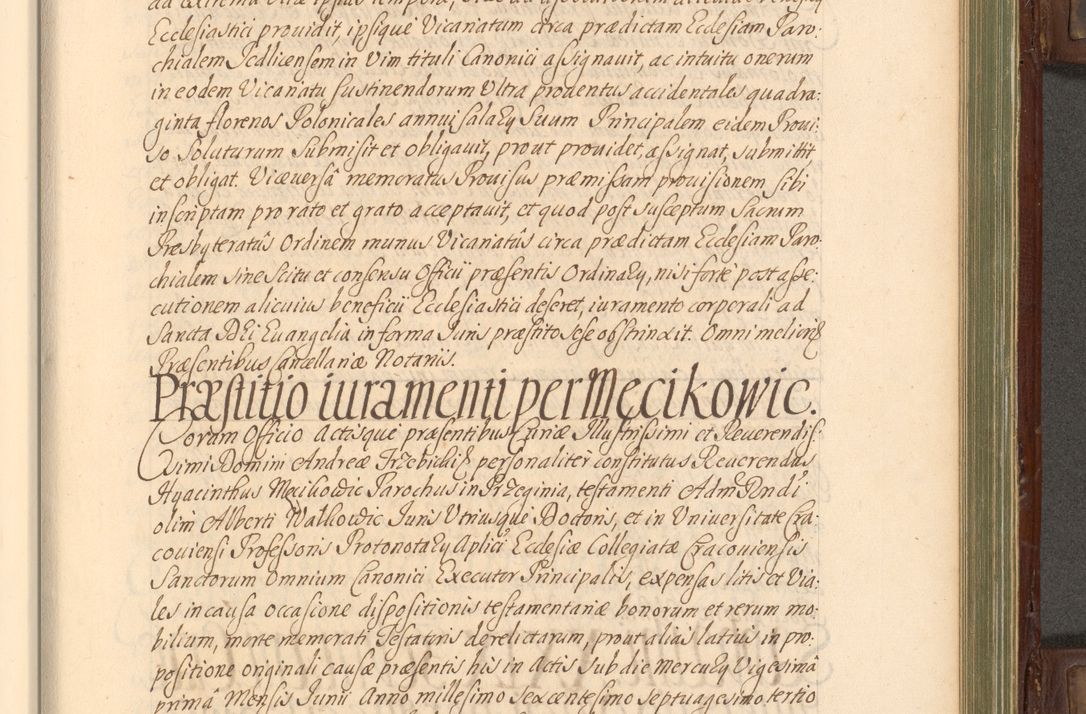 Ecclesiastici prouidit, ipsique Vicanatum circa prædictam Ecclesiam Paro-
chialem Jedlicensem in Vim tituli Canonici assignauit, ac intuitu onerum
in eodem Vicanatu sustinendorum Ultra prouentus accidentales quadra:
ginta florenos Polonicales annui salarij Suum Principalem eidem Proui:
so Soluturum Submisit et obligauit, prout prouidet, assignat, submittit,
et obligat. Viceuersâ memoratus Prouisus præmissam prouisionem sibi
in scriptam pro rato et grato acceptauit, et quod post susceptum Sacrum
Presbyteratûs Ordinem munus Vicariatûs circa prædictam Ecclesiam Paro-
chialem sine Scitu et consensu Officii præsentis Ordinarij, nisi forte post asse:
cutionem alicuius beneficii Ecclesiastici deseret, iuramento corporali ad
Sancta DEi Euangelia in forma Iuris præstito sese obstrinxit. Omni meliori
Præsentibus Cancellariæ Notariis.
Præstitio iuramenti per Męcikowic.
Coram Officio Actisque præsentibus Curiæ Illustrissimi et Reuerendis-
simi Domini Andreæ Trzebicki personaliter constitutus Reuerendus
Hyacinthus Męcikowic Parochus in Przeginia, testamenti Admˢ Rndi
olim Alberti Walkowic Iuris Utriusque Doctoris, et in Uniuersitate Cra-
couiensi Professoris Protonotarij Aplici Ecclesiæ Collegiatæ Cracouiensis
Sanctorum Omnium Canonici Executor Principalis, expensas litis et Via-
les in causa occasione dispositionis testamentariæ bonorum et rerum mo-
bilium, morte memorati Testatoris derelictarum, prout alias latius in pro-
positione originali causæ præsentis his in Actis sub die Mercurij Vigesimâ
primâ Mensis Junii Anno millesimo sexcentesimo septuagesimo tertio